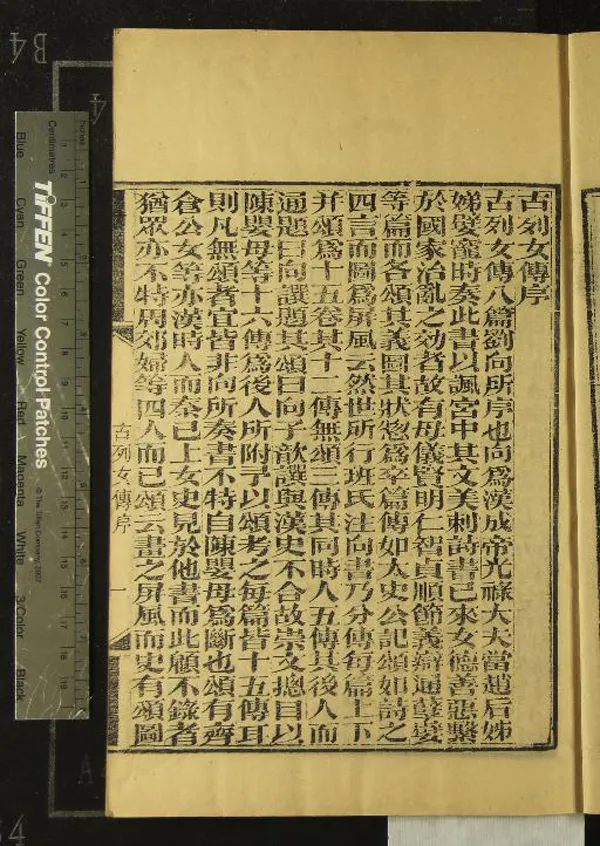 古列女傳序
古列女傳八篇劉向所序也向爲漢成帝光祿大夫當趙后姊
娣嬖寵時奏此書以諷宮中其文美刺詩書已來女德善惡繫
於國家治亂之効者故有母儀賢明仁智貞順節義辯通孽嬖
等篇而各頌其義圖其狀惣爲卒篇傳如太史公記頌如詩之
四言而圖爲屏風云然世所行班氏注向書乃分傳每篇上下
并頌爲十五卷其十二傳無頌三傳其同時人五傳其後人而
通題曰向譔題其頌曰向子歆譔與漢史不合故崇文摠目以
陳嬰母等十六傳爲後人所附予以頌考之每篇皆十五傳耳
則凡無頌者宜皆非向所奏書不特自陳嬰母爲斷也頌有齊
倉公女等亦漢時人而秦已上女史見於他書而此顧不錄者
猶眾亦不特周郊婦等四人而已頌云畫之屏風而史有頌圖
古列女傳序
一
B4
4
Centimetres
Inches
TIFFEN Color Control Patches
© The Tiffen Company, 2007
Blue
Cyan
Green
Yellow
Red
Magenta
White
3/Color
Black